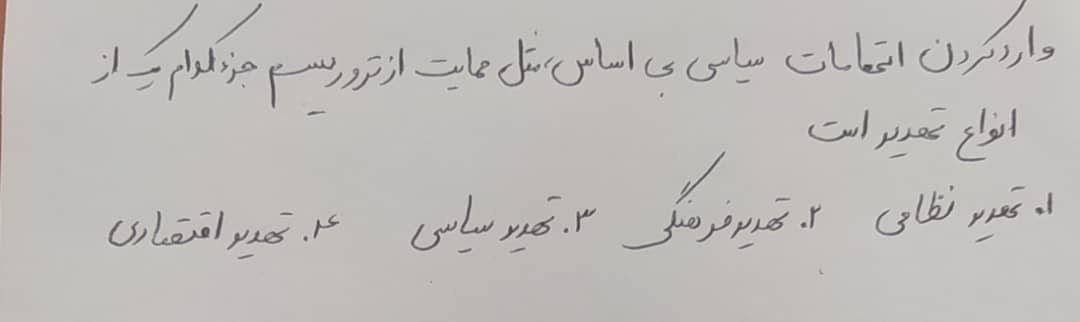 وارد کردن اتهامات سیاسی بی اساس، مثل حمایت از تروریسم جزء کدام یک از
انواع تهدید است
۱. تهدید نظامی ۲. تهدید فرهنگی ۳. تهدید سیاسی ۴. تهدید اقتصادی